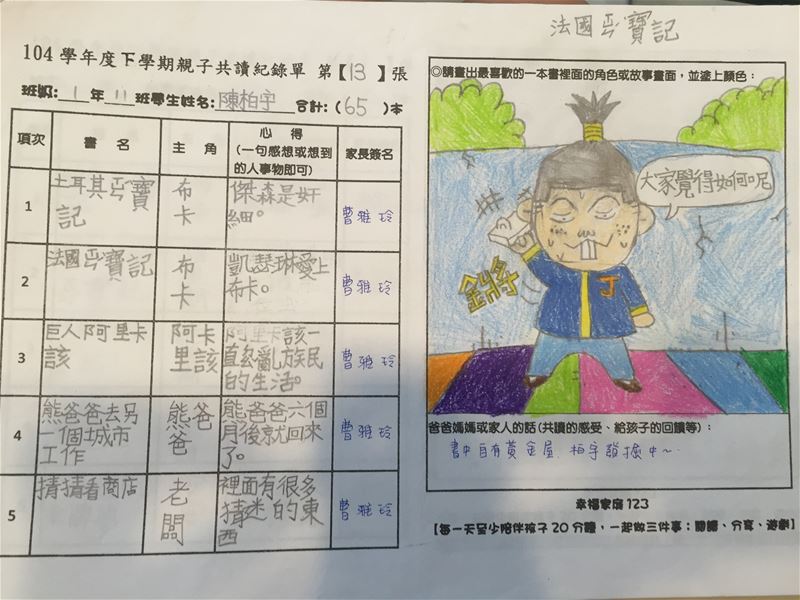 法國ㄕㄡ寶記
104 學年度下學期親子共讀紀錄單 第【13】張
班級:1年11班學生姓名:陳柏宇 合計:(65)本
項次 書名 主角 心得 (一句感想或想到的人事物即可) 家長簽名
1 土耳其寶記 布卡 傑森是奸細。 曹雅玲
2 法國寶記 布卡 凱瑟琳愛上布卡。 曹雅玲
3 巨人阿里卡該 阿里卡該 阿里卡該一直紛亂族民的生活。 曹雅玲
4 熊爸爸去另一個城市工作 熊爸爸 熊爸爸六個月後就回來了。 曹雅玲
5 猜猜看商店 老闆 裡面有很多猜迷的東西 曹雅玲
◎請畫出最喜歡的一本書裡面的角色或故事畫面,並塗上顏色:
大家覺得如何呢
鏘
J
爸爸媽媽或家人的話(共讀的感受、給孩子的回饋等):
書中自有黃金屋 柏宇發掘中~
幸福家庭 123
【每一天至少陪伴孩子 20 分鐘,一起做三件事:閱讀、分享、遊戲】